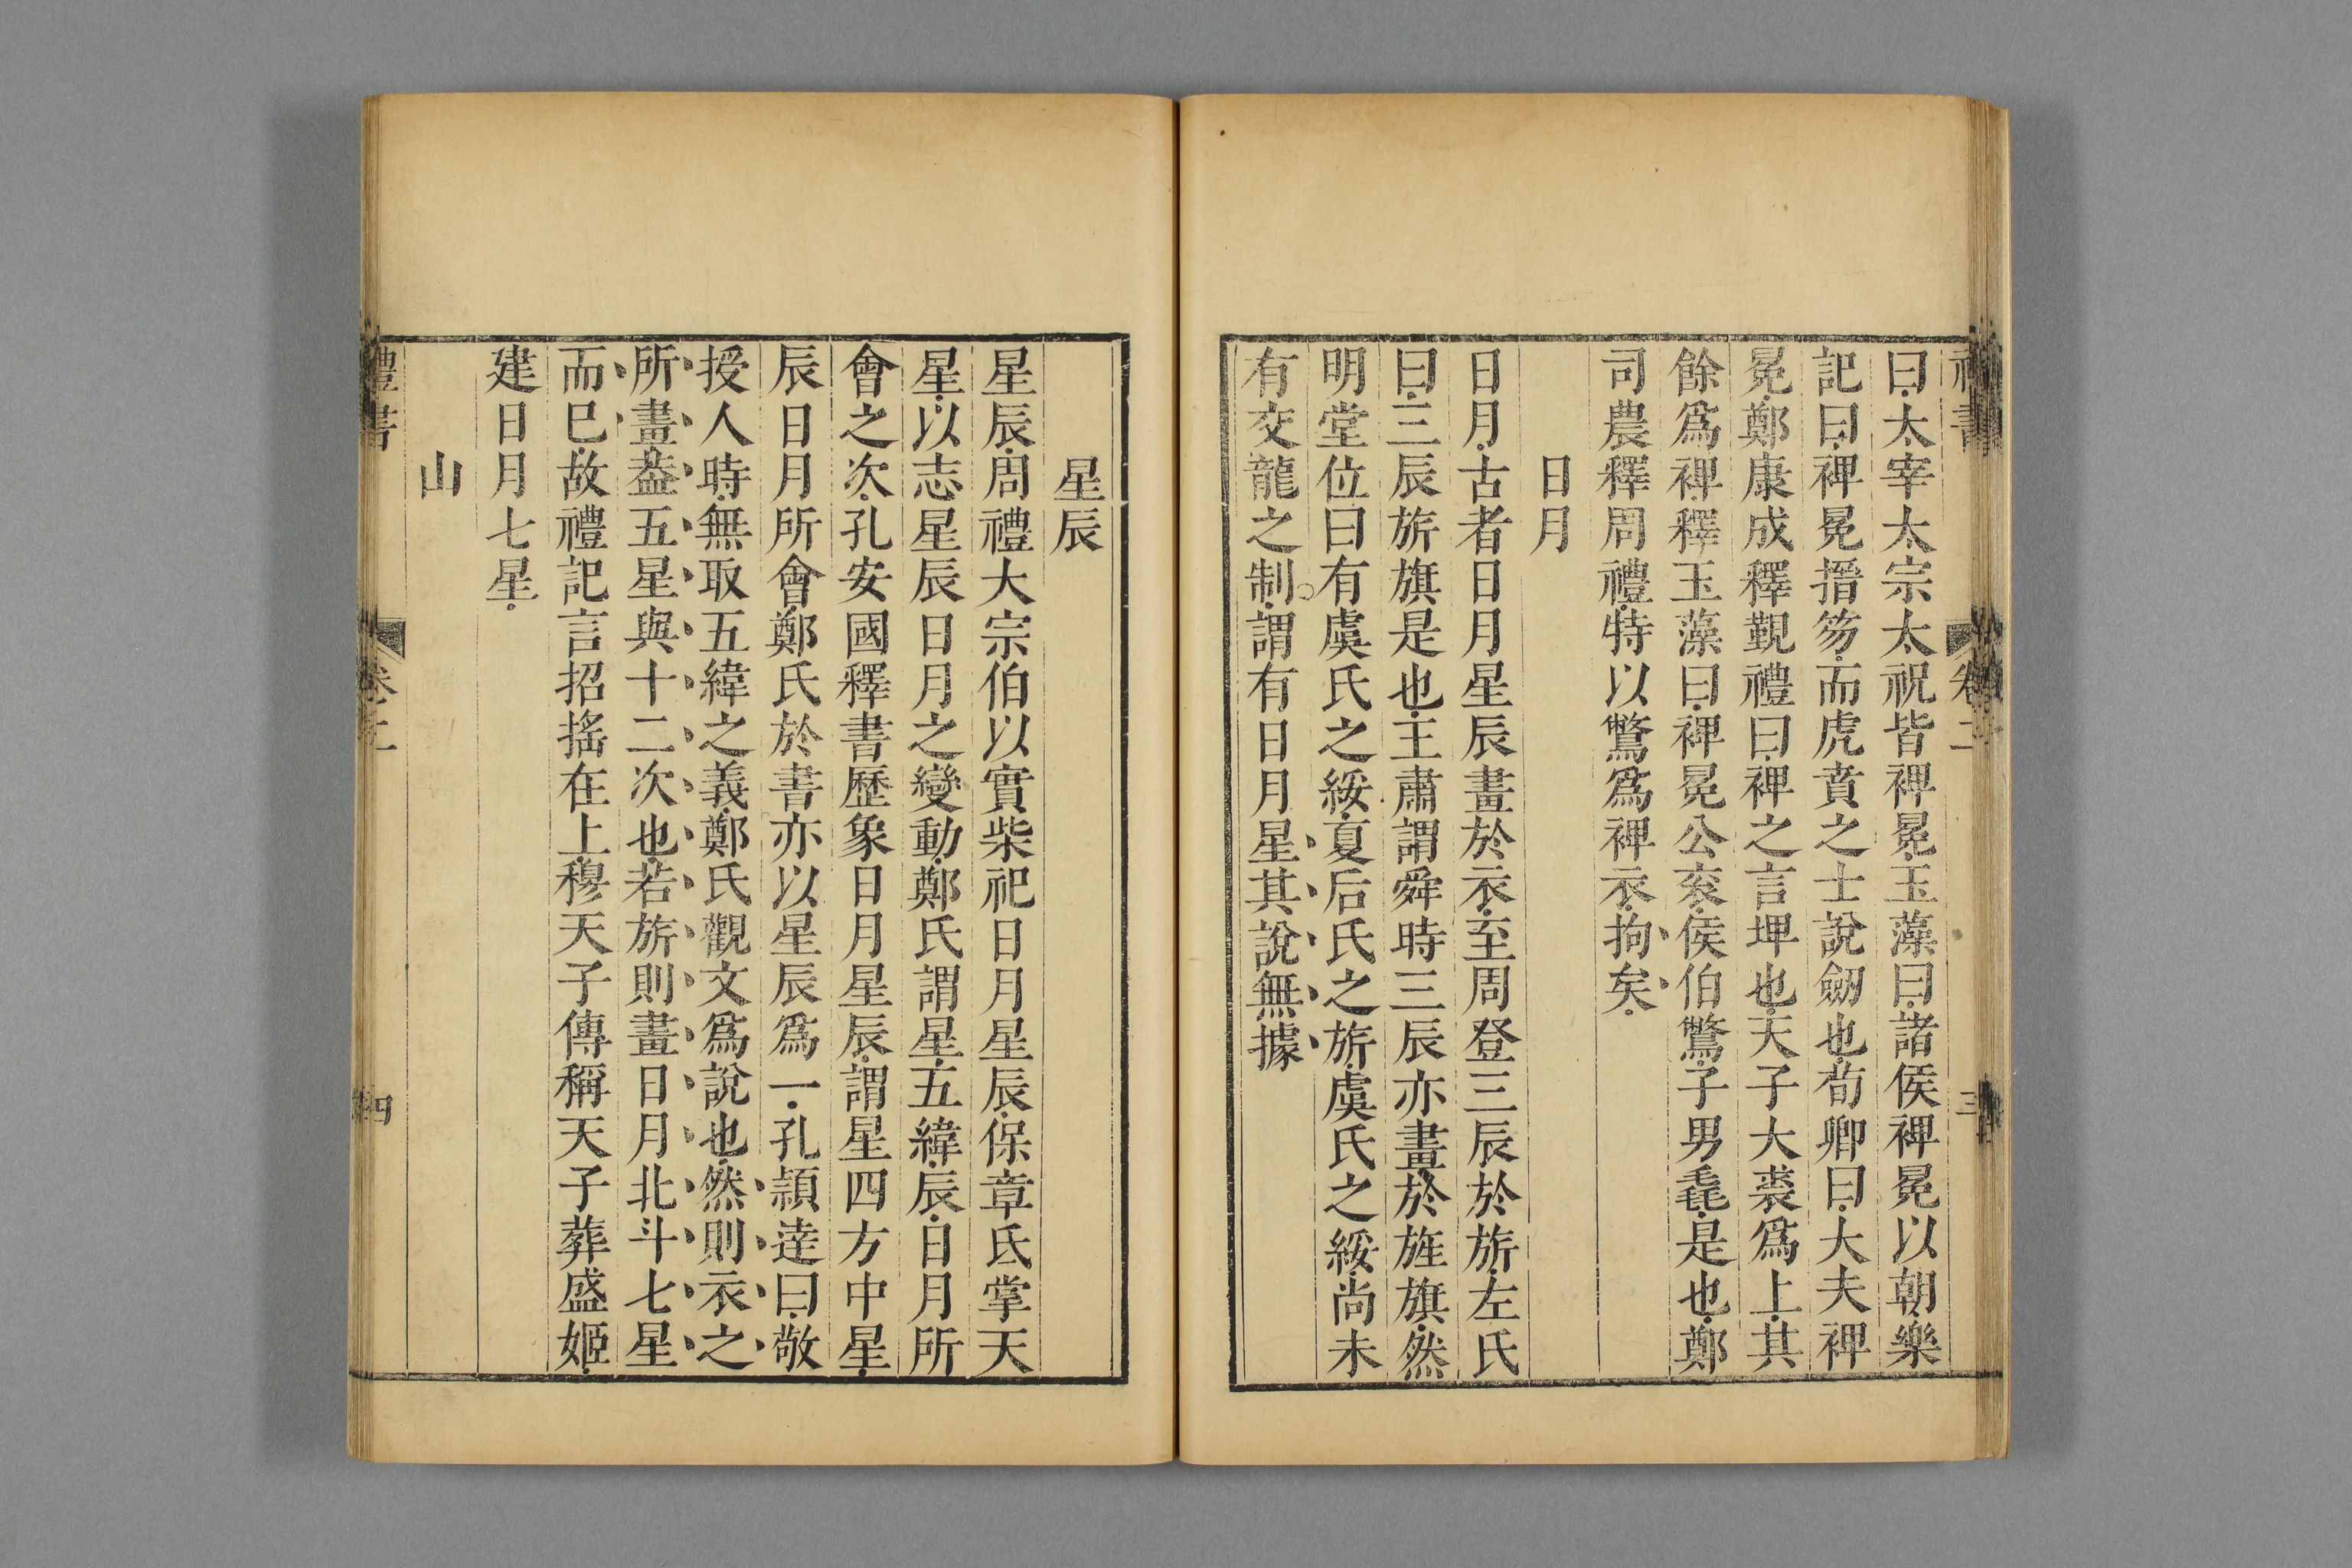 禮書 卷二 三
曰太宰太宗太祝皆裨冕玉藻曰諸侯裨冕以朝樂
記曰裨冕搢笏而虎賁之士說劒也荀卿曰大夫裨
冕鄭康成釋覲禮曰裨之言埤也天子大裘爲上其
餘爲裨釋玉藻曰裨冕公衮侯伯鷩子男毳是也鄭
司農釋周禮特以鷩爲裨衣拘矣
日月
日月古者日月星辰畫於衣至周登三辰於旂左氏
曰三辰旂旗是也王肅謂舜時三辰亦畫於旌旗然
明堂位曰有虞氏之綏夏后氏之旂虞氏之綏尚未
有交龍之制謂有日月星其說無據
星辰
星辰周禮大宗伯以實柴祀日月星辰保章氏掌天
星以志星辰日月之變動鄭氏謂星五緯辰日月所
會之次孔安國釋書歷象日月星辰謂星四方中星
辰日月所會鄭氏於書亦以星辰爲一孔頴逹曰敬
授人時無取五緯之義鄭氏觀文爲說也然則衣之
所畫葢五星與十二次也若旂則畫日月北斗七星
而巳故禮記言招搖在上穆天子傳稱天子葬盛姬
建日月七星
山
禮書 卷二 四